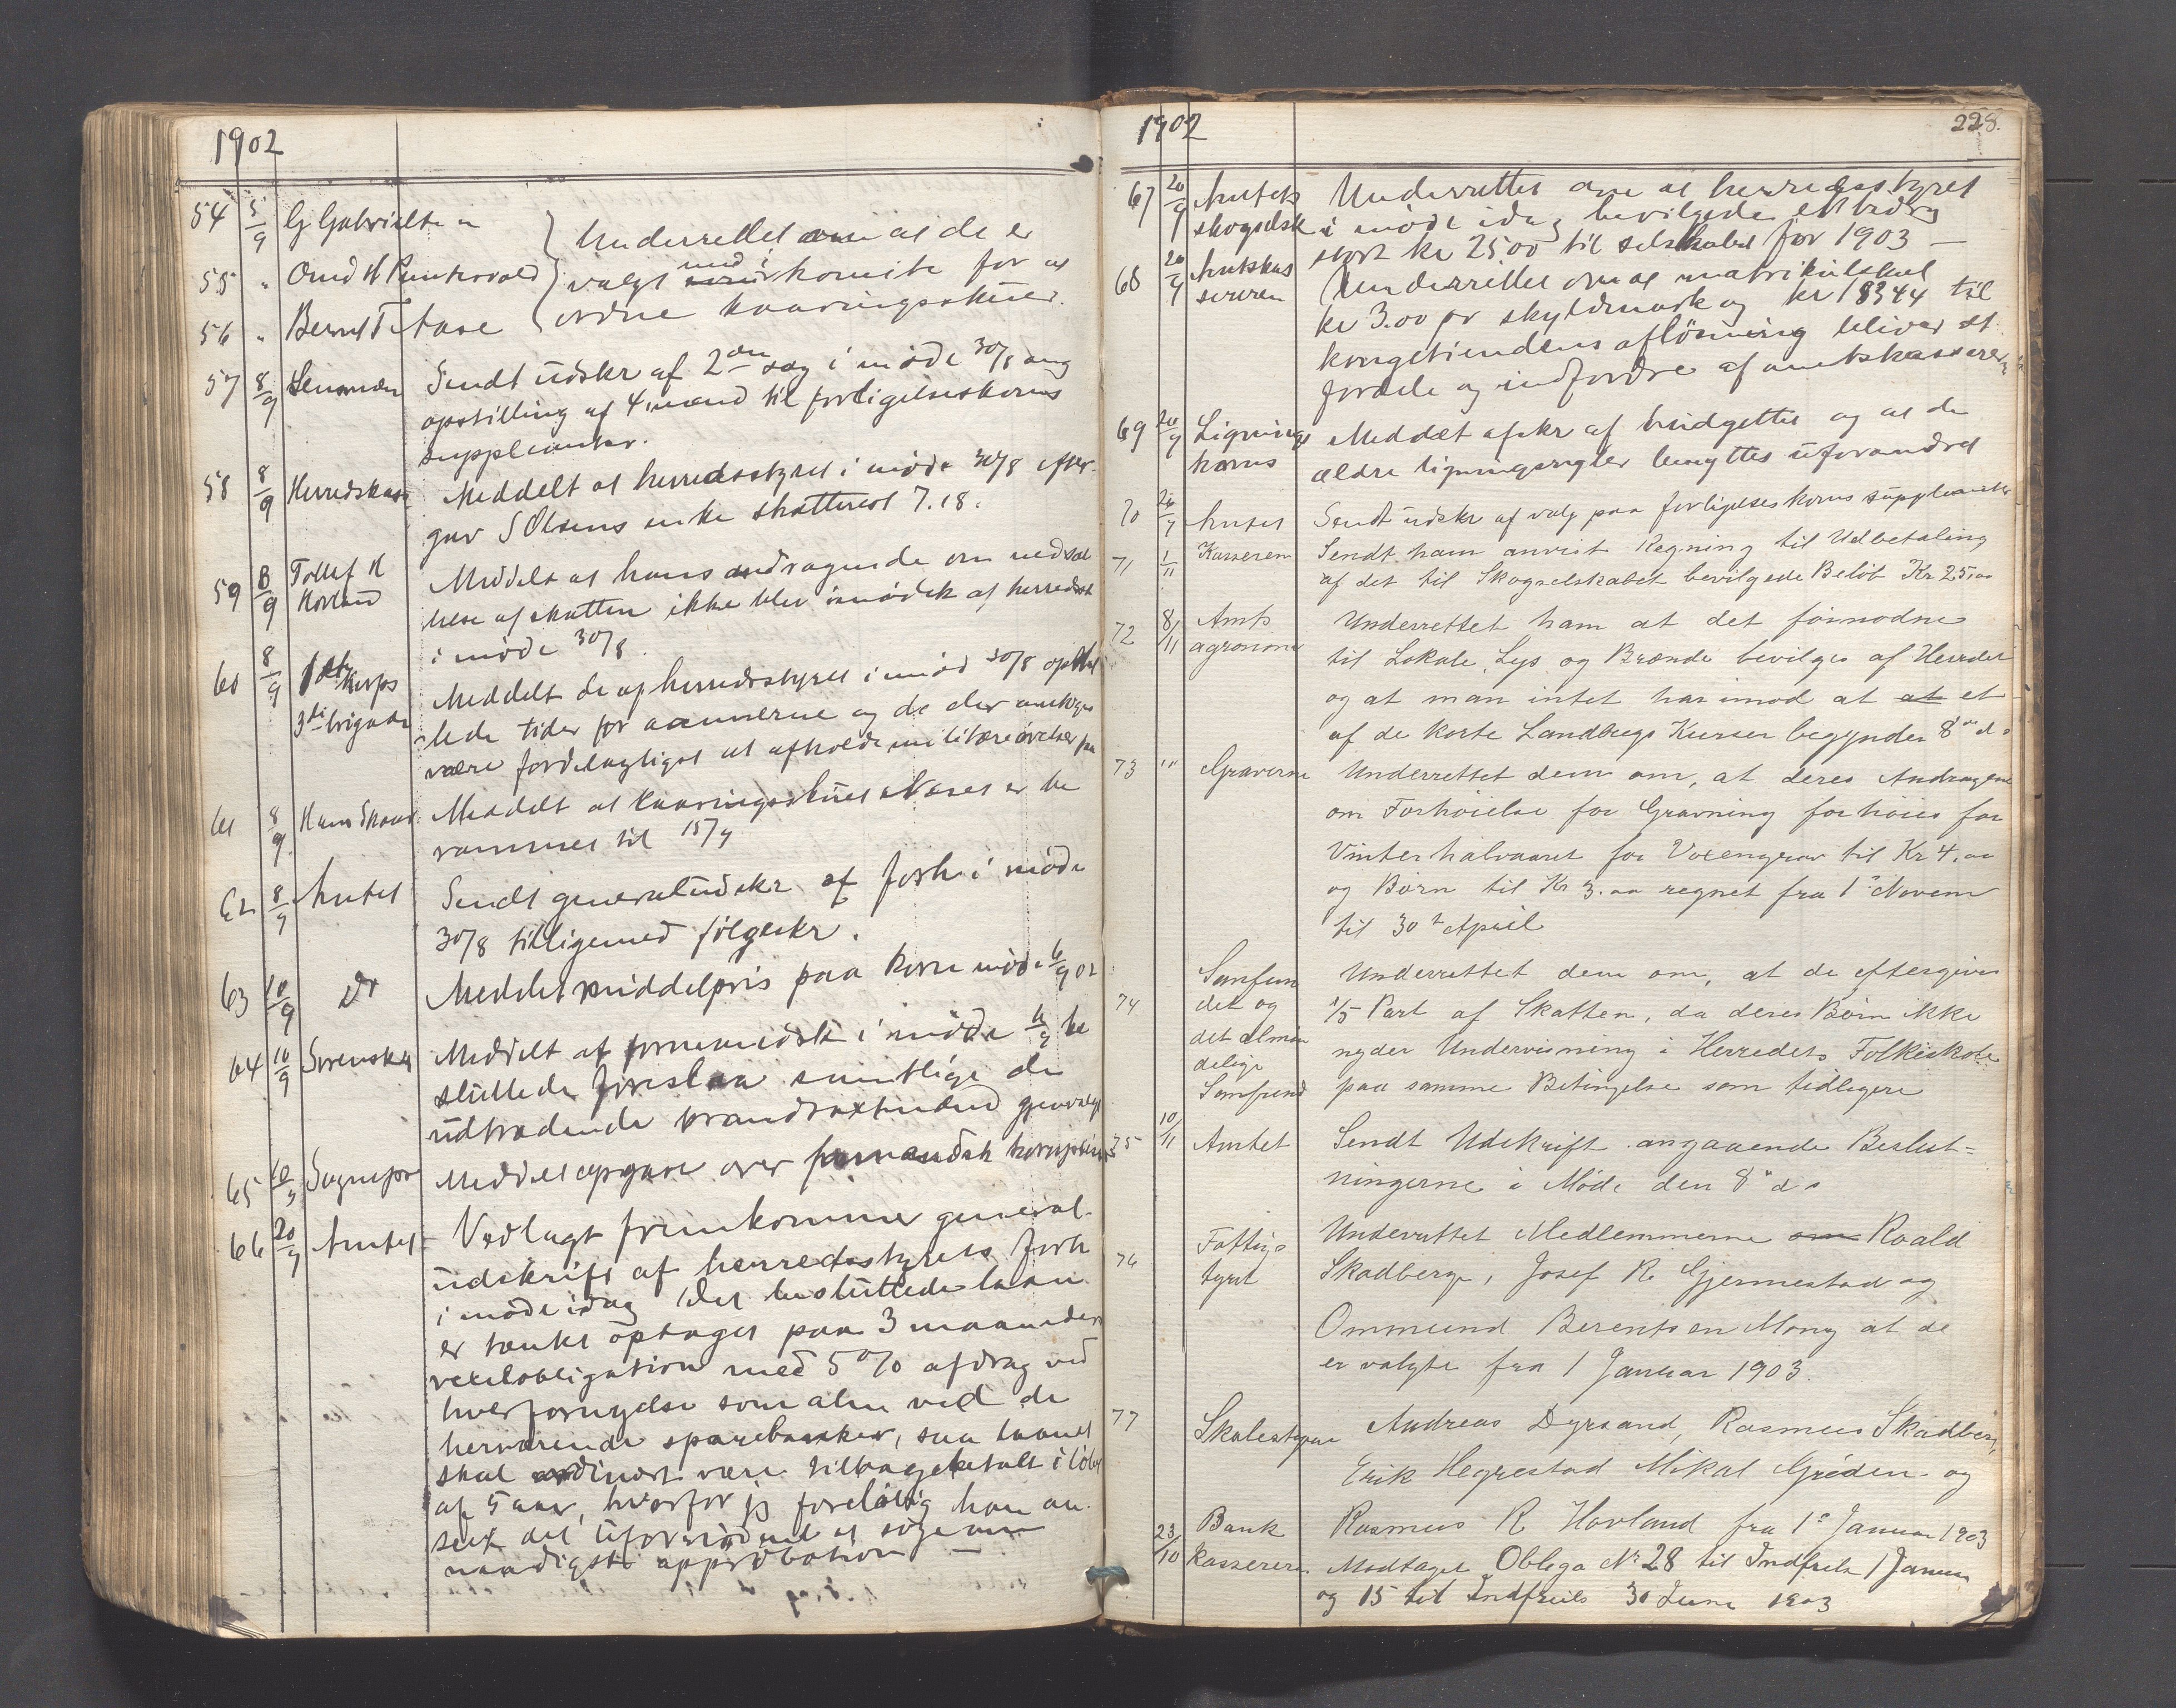 1902
54 5/9 G Gabrielsen
55 " Omd H Puntervold
56 " Bernt T Aase
Underrettet om at de er
valgt med i komite for at
ordne kaaringsskuer.
57 8/9 Lensmæn Sendt udskr af 2den sag i møde 30/8 ang
opstilling af 4 mænd til forligelseskoms
suppleanter.
58 8/9 Herredskass Meddelt at herredsstyret i møde 30/8 efter-
gav S Olsens enke skatterest 7.18.
59 8/9 Tollef H Hovland Meddelt at hans andragende om nedsæt
telse af skatten ikke blev imødek af herredsst
i møde 30/8.
60 8/9 korps 3die brigade Meddelt de af herredsstyret i mød 30/8
lede tider for aannerne og de der antages
være fordelagtigst at afholde militære øvelser paa
61 8/9 Hans Meddelt at kaaringsskuet Næset er be
rammet til 15/9
62 8/9 Amtet Sendt generaludskr af forh i møde
30/8 tilligemed følgeskr.
63 10/9 Do Meddelt middelpris paa korn møde 6/9 02
64 10/9 Sorenskr Meddelt at formandsk i møde 6/9 be
sluttede foreslaa samtlige de
udtrædende brandtaxtmænd gjenvalgt
65 10/9 Sognepr Meddelt opgave over formandsk
66 20/9 Amtet Vedlagt fremkommer general-
udskrift af herredsstyrets forh
i møde idag Det besluttede laan
er tænkt optaget paa 3 maaneders
vexelobligation med 5% afdrag ved
hver fornyelse som alm ved de
herværende sparebanker, saa laanet
skal ordinært være tilbagebetalt i løbet
af 5 aar, hvorfor jeg foreløbig har an-
seet det ufornødent at søge om
naadigst approbation —
1902 228.
67 20/9 Amtets skogselsk Underrettet om at herredsstyret
i møde idag bevilgede et bidrag
stort kr 25.00 til selskabet for 1903 —
68 20/9 Amtskas sereren Underrettet om at matrikulskat
kr 3.00 pr skyldmark og kr 183.44 til
kongetiendens afløsning bliver at
fordele og indfordre af amtskassereren
69 20/9 Lignings koms Meddelt afskr af budgettet og at de
ældre ligningsregler benyttes uforandret
70 20/9 Amtet Sendt udskr af valg paa forligelseskoms suppleanter
71 1/11 Kasseren Sendt ham anvist Regning til Udbetaling
af det til Skogselskabet bevilgede Beløb Kr 25,00
72 8/11 Amts agronom Underrettet ham at det fornødne
til Lokale, Lys og Brænde bevilges af Herredet
og at man intet har imod at at et
af de korte Landbrugs Kurser begynder 8de ds
73 " Graverne Underrettet dem om, at deres Andragene
om Forhøielse for Gravning forhøies for
Vinterhalvaaret for Voxengrav til Kr 4.00
og Børn til Kr 3.00 regnet fra 1ste Novem
til 30te April
74 Samfun det og det almin delige Samfund Underrettet dem om, at de eftergives
1/5 Part af Skatten, da deres Børn ikke
nyder Undervisning i Herredets Folkeskole
paa samme Betingelse som tidligere
75 10/11 Amtet Sendt Udskrift angaaende Beslut=
ningerne i Møde den 8de ds
76 Fattigs tyret Underrettet Medlemmerne om Roald
Skadberg, Josef R. Gjermestad og
Ommund Berentsen Mong at de
er valgte fra 1 Januar 1903.
77 Skolestyret Andreas Dyrsand, Rasmus Skadberg,
Erik Hegrestad Mikal Grøden og
Rasmus R Hovland fra 1ste Januar 1903
23/10 Bank kasserer Modtaget Obliga No 28 til Indfrielse 1 Januar
og 15 til Indfriels 30 Juni 1903